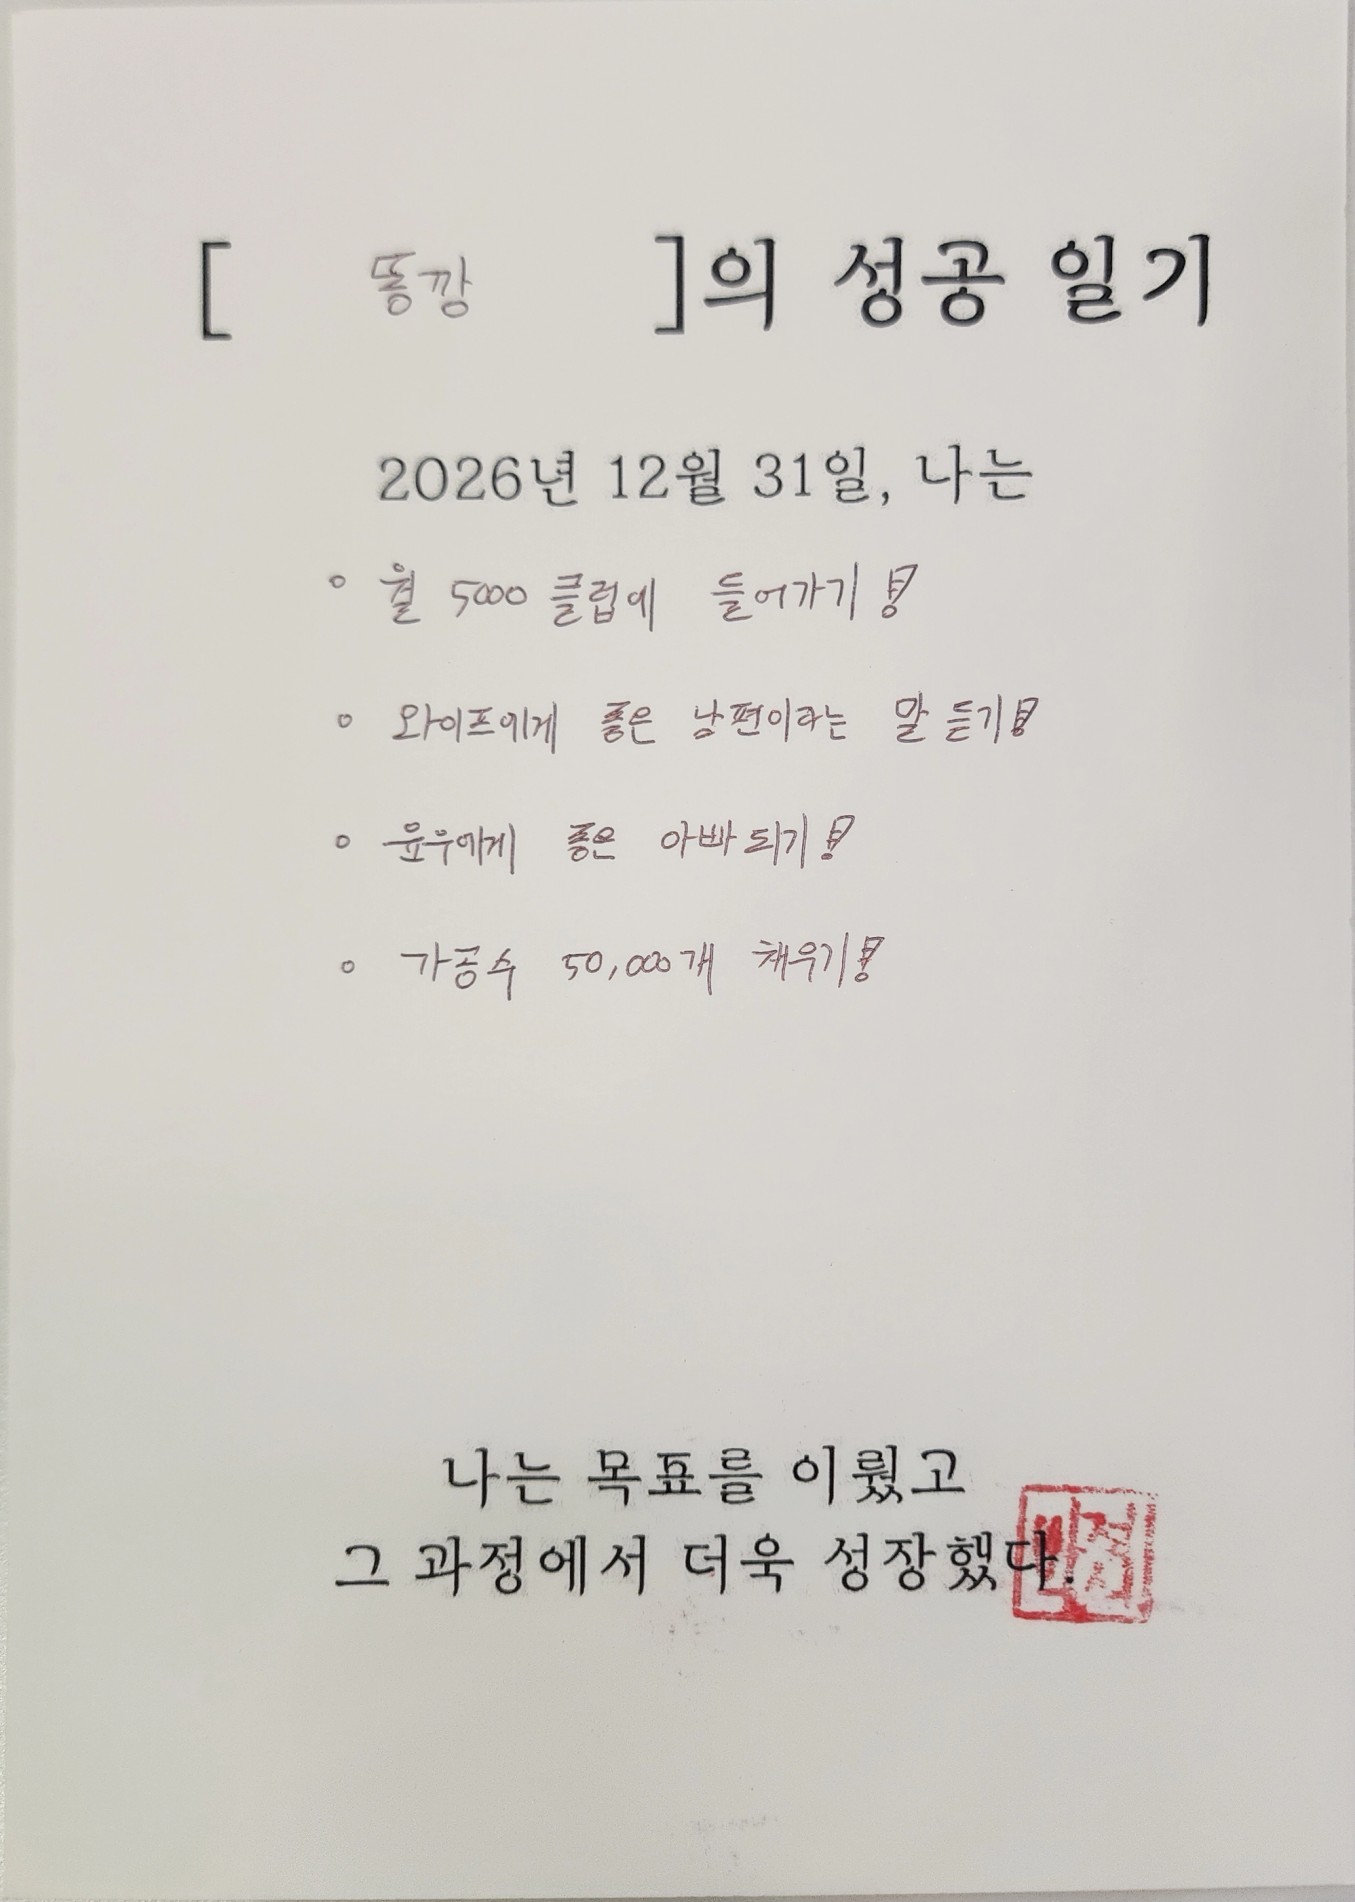 [ 똥깡 ]의 성공 일기
2026년 12월 31일, 나는
◦ 월 5000 클럽에 들어가기!
◦ 와이프에게 좋은 남편이라는 말 듣기!
◦ 윤우에게 좋은 아빠 되기!
◦ 가공수 50,000개 채우기!
나는 목표를 이뤘고
그 과정에서 더욱 성장했다.